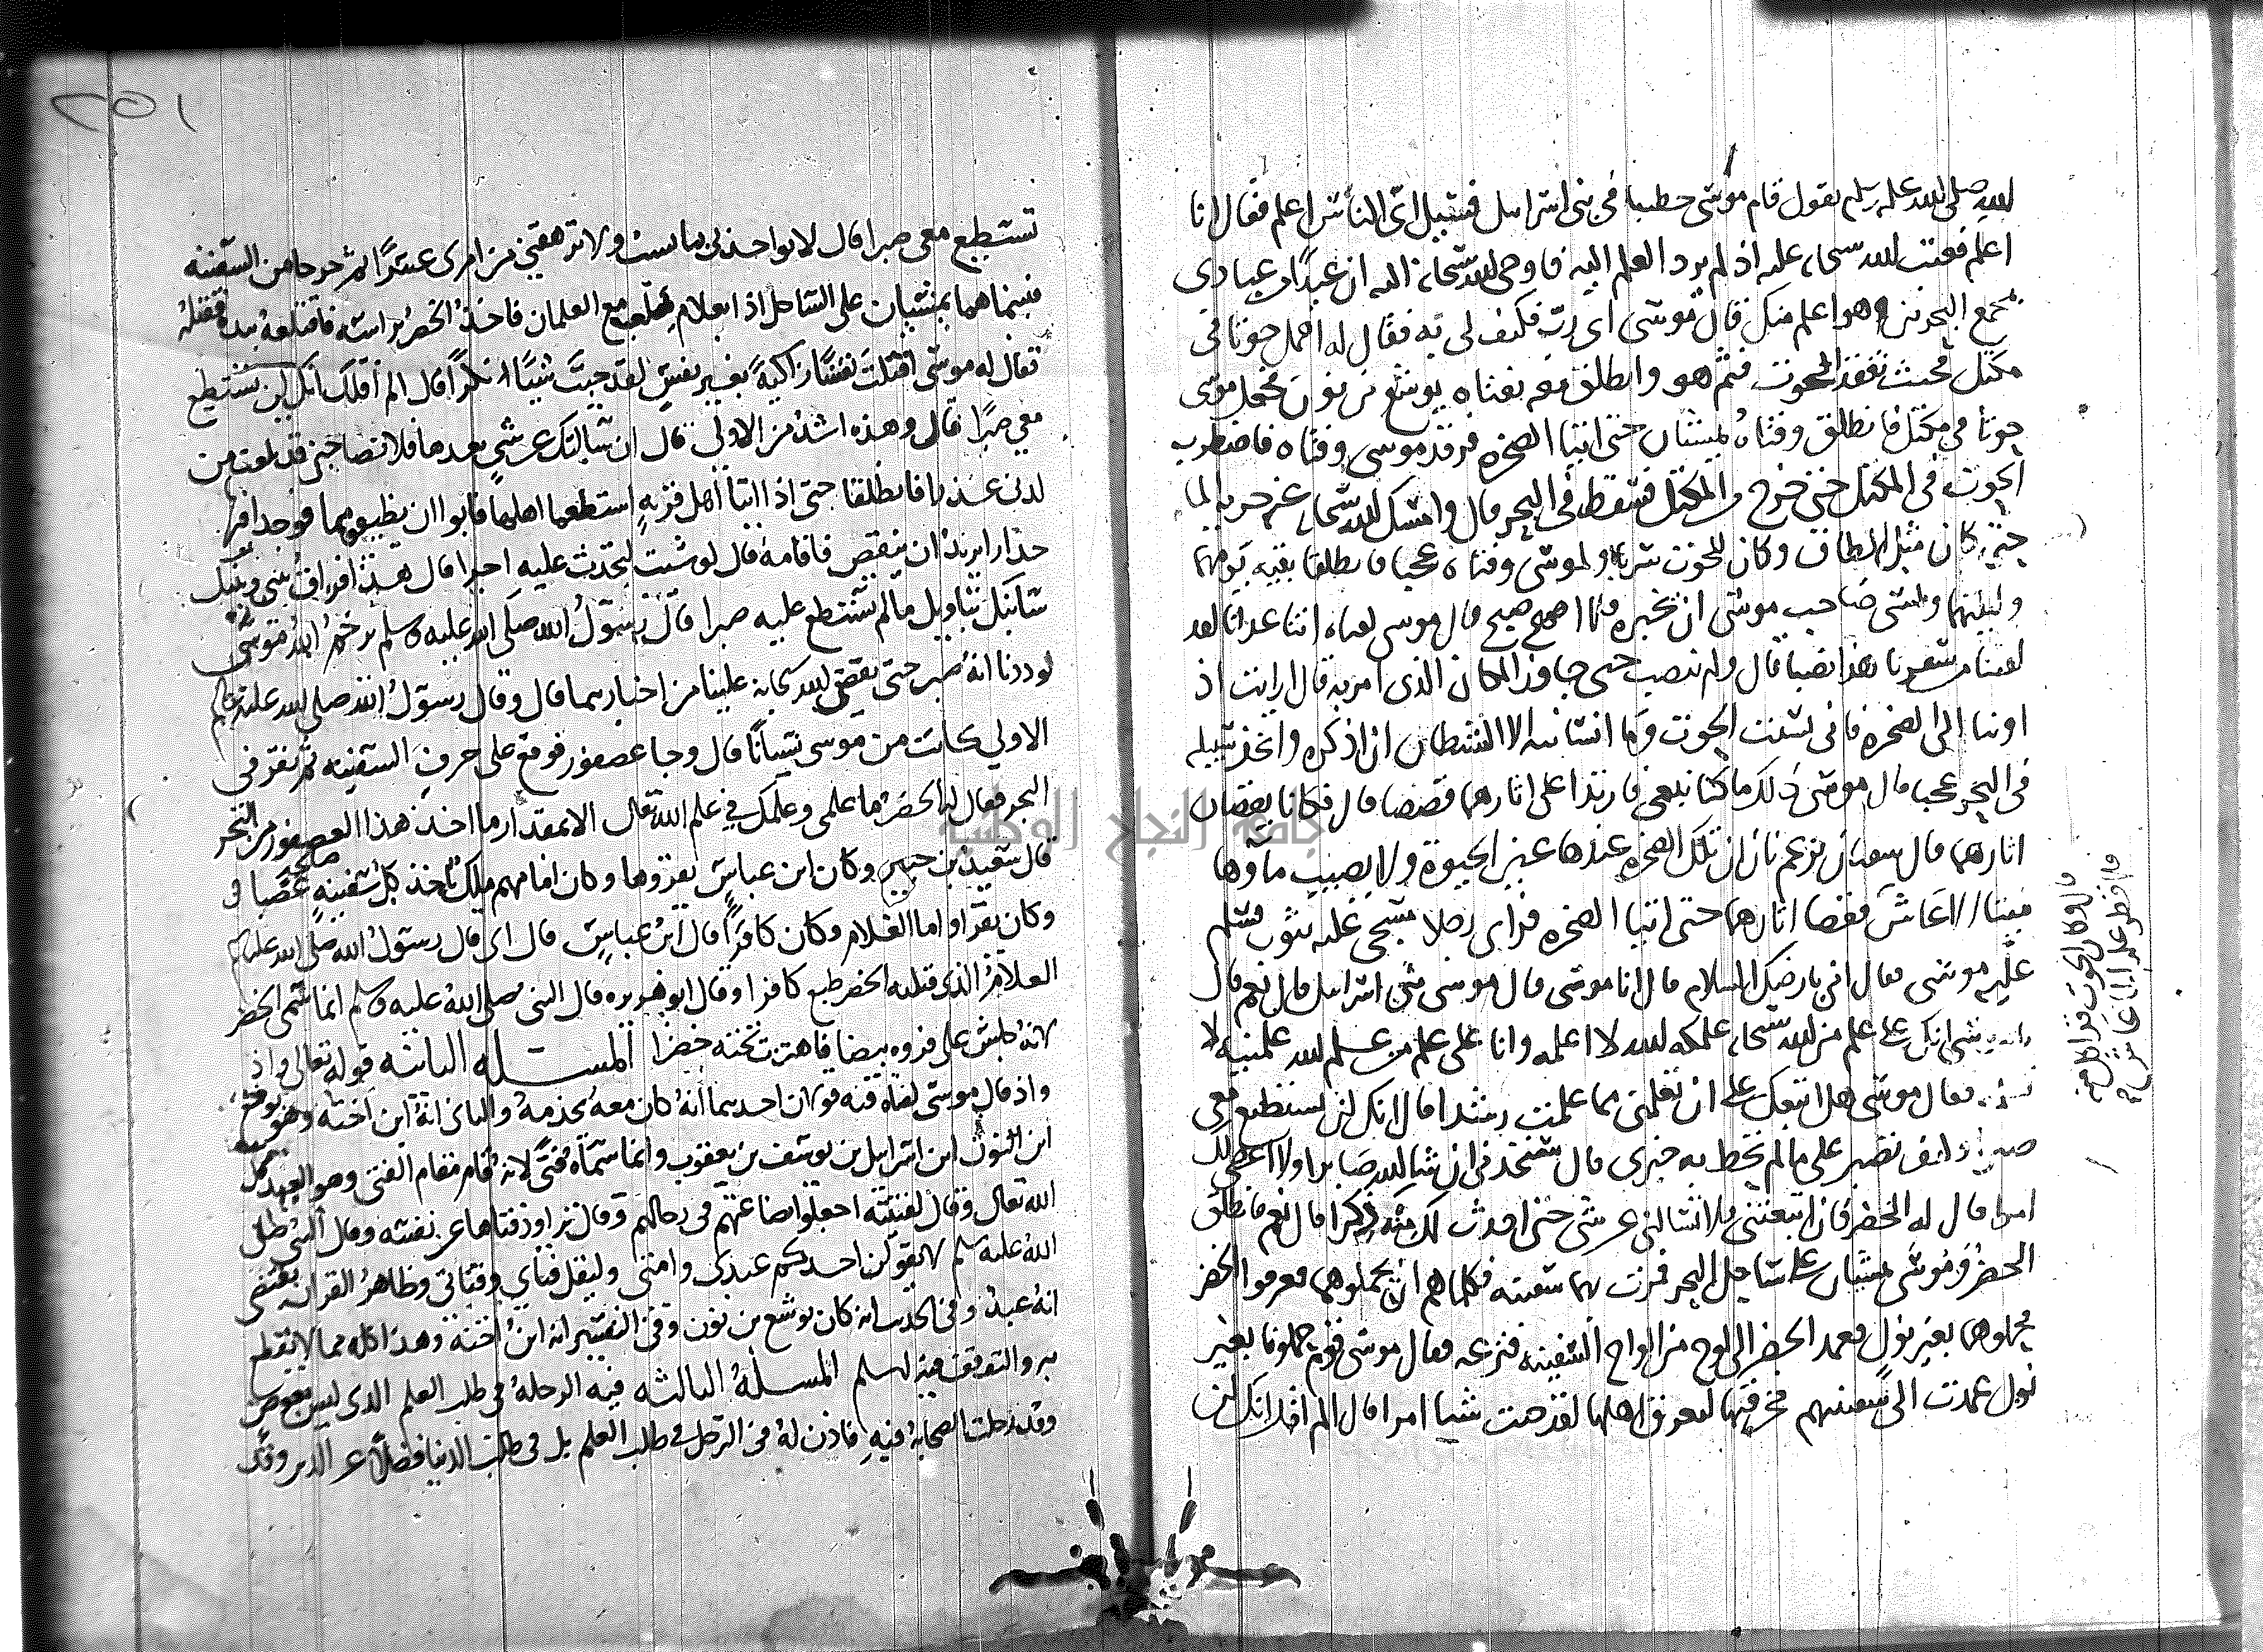 الله صلى الله عليه وسلم يقول قام موسى خطيبا في بني اسرائيل فسيل اي الناس اعلم فقال انا
اعلم فعتب الله سبحانه عليه اذ لم يرد العلم اليه فاوحى الله سبحانه اليه ان عبدا من عبادي
بمجمع البحرين هو اعلم منك قال موسى اي رب فكيف لي به فقال له احمل حوتا في
مكتل فحيث تفقد الحوت فثم هو وانطلق معه بفتاه يوشع بن نون فجعل موسى
حوتا في مكتل فانطلق وفتاه يمشيان حتى اتيا الصخره فرقد موسى وفتاه فاضطرب
الحوت في المكتل حتى خرج من المكتل فسقط في البحر قال وامسك الله سبحانه عنه جريه الما
حتى كان مثل الطاق وكان للحوت سربا ولموسى وفتاه عجبا فانطلقا بقيه يومهما
وليلتهما ونسى صاحب موسى ان يخبره فلما اصبح موسى قال موسى لفتاه اتنا غدانا لقد
لقينا من سفرنا هذا نصبا قال ولم ينصب حتى جاوز المكان الذي امر به قال ارايت اذ
اوينا الى الصخره فاني نسيت الحوت وما انسانيه الا الشيطان ان اذكره واتخذ سبيله
في البحر عجبا قال موسى ذلك ما كنا نبغي فارتدا على اثارهما قصصا قال فكانا يقصان
اثارهما قال سفيان يزعم ناس ان تلك الصخره عندها عين الحيوة ولا يصيب ماؤها
ميتا الا عاش فقصا اثارهما حتى اتيا الصخره فراى رجلا مسجى عليه بثوب فسلم
عليه موسى فقال انى بارضك السلام قال انا موسى قال موسى بني اسرائيل قال نعم قال
يا موسى انك على علم من الله سبحانه علمكه الله لا اعلمه وانا على علم من علم الله علمنيه لا
تعلمه فقال موسى هل اتبعك على ان تعلمني مما علمت رشدا قال انك لن تستطيع معي
صبرا وكيف تصبر على مالم تحط به خبرا قال ستجدني ان شا الله صابرا ولا اعصي لك
امرا قال له الخضر فان اتبعتني فلا تسالني عن شي حتى احدث لك منه ذكرا قال نعم فانطلق
الخضر وموسى يمشيان على ساحل البحر فمرت بهما سفينه فكلماهم ان يحملوهما فعرفوا الخضر
فحملوهما بغير نول فعمد الخضر الى لوح من الواح السفينه فنزعه فقال موسى قوم حملونا بغير
نول عمدت الى سفينتهم فخرقتها لتغرق اهلها لقد جيت شيا امرا قال الم اقل انك لن
قال وكان الحوت قد اكل منه
فلما قطر عليه الما عاش
تستطيع معي صبرا قال لا تواخذني بما نسيت ولا ترهقني من امري عسرا ثم خرجا من السفينه
فبينما هما يمشيان على الساحل اذا بغلام يلعب مع الغلمان فاخذ الخضر براسه فاقتلعه بيده فقتله
فقال له موسى اقتلت نفسا زاكية بغير نفس لقد جيت شيا نكرا قال الم اقل لك انك لن تستطيع
معي صبرا قال وهذه اشد من الاولى قال ان سالتك عن شي بعدها فلا تصاحبني قد بلغت من
لدني عذرا فانطلقا حتى اذا اتيا اهل قرية استطعما اهلها فابوا ان يضيفوهما فوجدا فيها
جدارا يريد ان ينقض فاقامه قال لو شيت لتخذت عليه اجرا قال هذا فراق بيني وبينك
سانبيك بتاويل مالم تستطع عليه صبرا قال رسول الله صلى الله عليه وسلم يرحم الله موسى
لوددنا انه صبر حتى يقص الله سبحانه علينا من اخبارهما قال وقال رسول الله صلى الله عليه وسلم
الاولى كانت من موسى نسيانا قال وجا عصفور فوقع على حرف السفينه ثم نقر في
البحر فقال له الخضر ما علمي وعلمك في علم الله تعالى الا بمقدار ما اخذ هذا العصفور من البحر
قال سعيد بن جبير وكان ابن عباس يقروها وكان امامهم ملك ياخذ كل سفينه صالحة غصبا
وكان يقرا واما الغلام وكان كافرا قال ابن عباس قال ابي قال رسول الله صلى الله عليه وسلم
الغلام الذي قتله الخضر طبع كافرا وقال ابو هريره قال النبي صلى الله عليه وسلم انما سمي الخضر
لانه جلس على فروه بيضا فاهتزت تحته خضرا المسله الثانيه قوله تعالى واذ
واذ قال موسى لفتاه فيه قولان احدهما انه كان معه يخدمه والثاني انه ابن اخته وهو يوشع
ابن النون ابن اسرائيل بن يوسف بن يعقوب وانما سماه فتى لانه قام مقام الفتى وهو العبد قال
الله تعالى وقال لفتيته اجعلوا بضاعتهم في رحالهم وقال تراود فتاها عن نفسه وقال النبي صلى
الله عليه وسلم لا يقولن احدكم عبدي وامتي وليقل فتاي وفتاتي وظاهر القران يقتضي
انه عبد وفي الحديث انه كان يوشع بن نون وفي التفسير انه ابن اخته وهذا كله مما لا يقطع
به والتوقف فيه اسلم المسلة الثالثه فيه الرحلة في طلب العلم الذي ليس بفرض
وقد رحلت الصحابة فيه فاذن له في الترحل في طلب العلم بل في طلب الدنيا فضلا عن الدين وقد
جامعة النجاح الوطنية